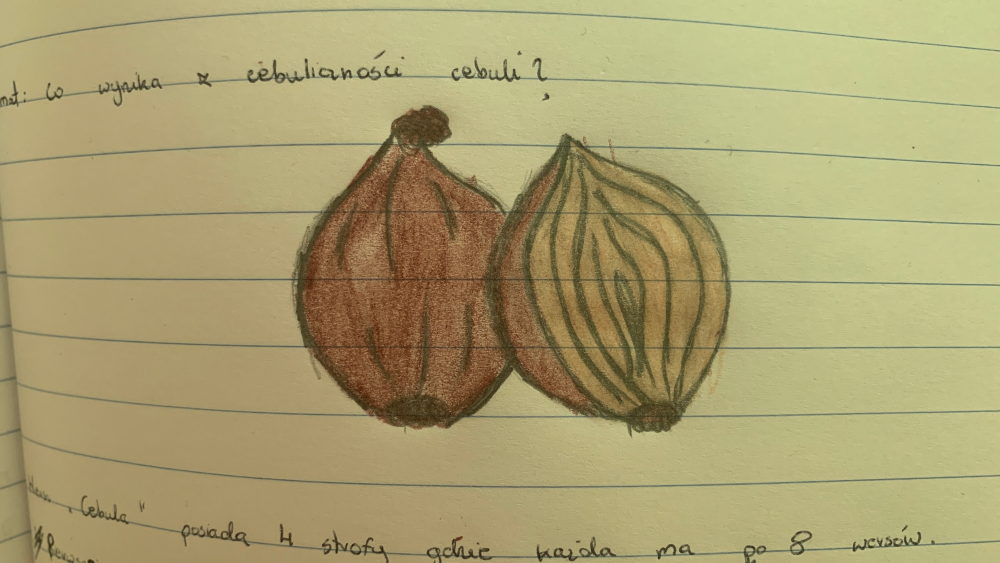 mat: Co wynika z cebuliczności cebuli?
"Cebula" posiada 4 strofy gdzie każda ma po 8 wersów.